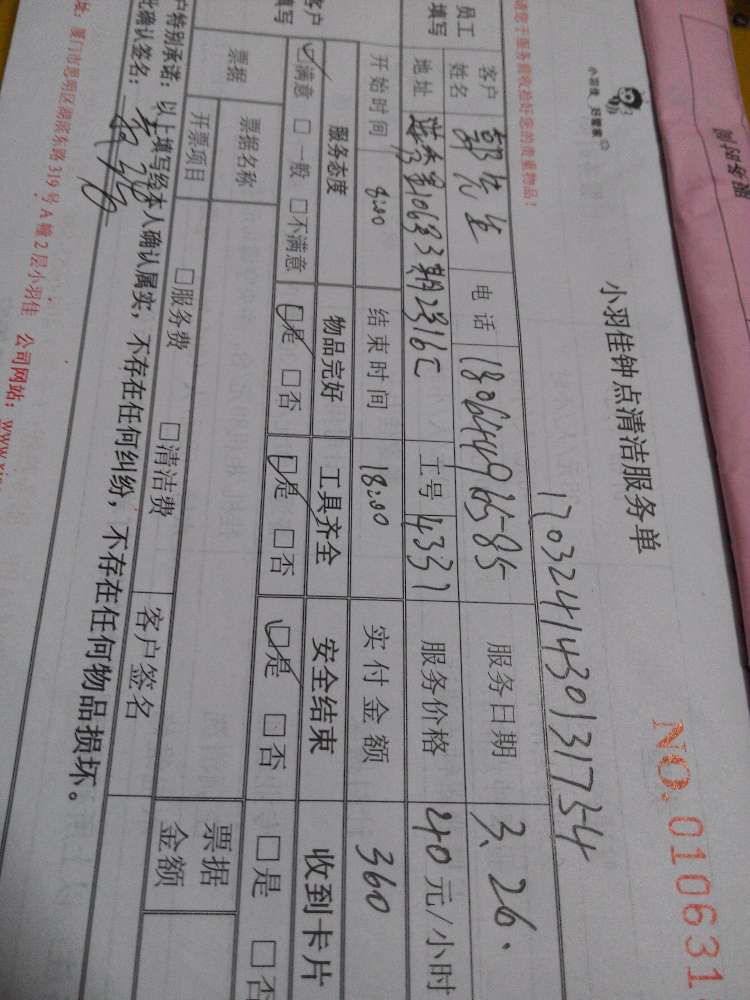 小羽佳 好管家
小羽佳钟点清洁服务单
NO.010631
请您于服务前收拾好您的贵重物品!
17032414301317354
员工填写
客户姓名 郭先生 电话 服务日期 3.26.
地址 工号 4331 服务价格 40元/小时
开始时间 8:00 结束时间 18:00 实付金额 360
客户填写
服务态度 物品完好 工具齐全 安全结束 收到卡片
☑满意 □一般 □不满意 ☑是 □否 ☑是 □否 ☑是 □否 □是 □否
票据 票据名称 票据金额
开票项目 □服务费 □清洁费 客户签名
户特别承诺:以上填写经本人确认属实,不存在任何纠纷,不存在任何物品损坏。
此确认签名:
址:厦门市思明区湖滨东路319号A幢2层小羽佳 公司网站:www.xi